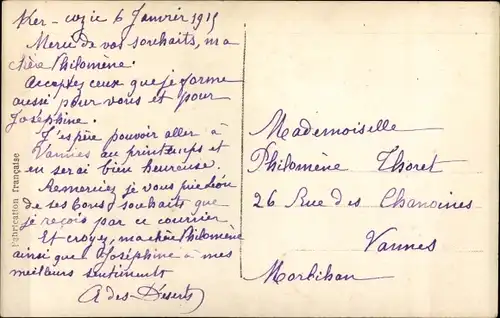 Ker-cozic 6 Janvier 1915
Merci de vos souhaits, ma
chère Philomène.
Acceptez ceux que je forme
aussi pour vous et pour
Joséphine.
J'espère pouvoir aller à
Vannes au printemps et
en serai bien heureuse.
Remerciez je vous prie
de ses bons souhaits que
je reçois par ce courrier
Et croyez, ma chère Philomène
ainsi que Joséphine à mes
meilleurs sentiments
A des Déserts
Fabrication Française
Mademoiselle
Philomène Thoret
26 Rue des Chanoines
Vannes
Morbihan